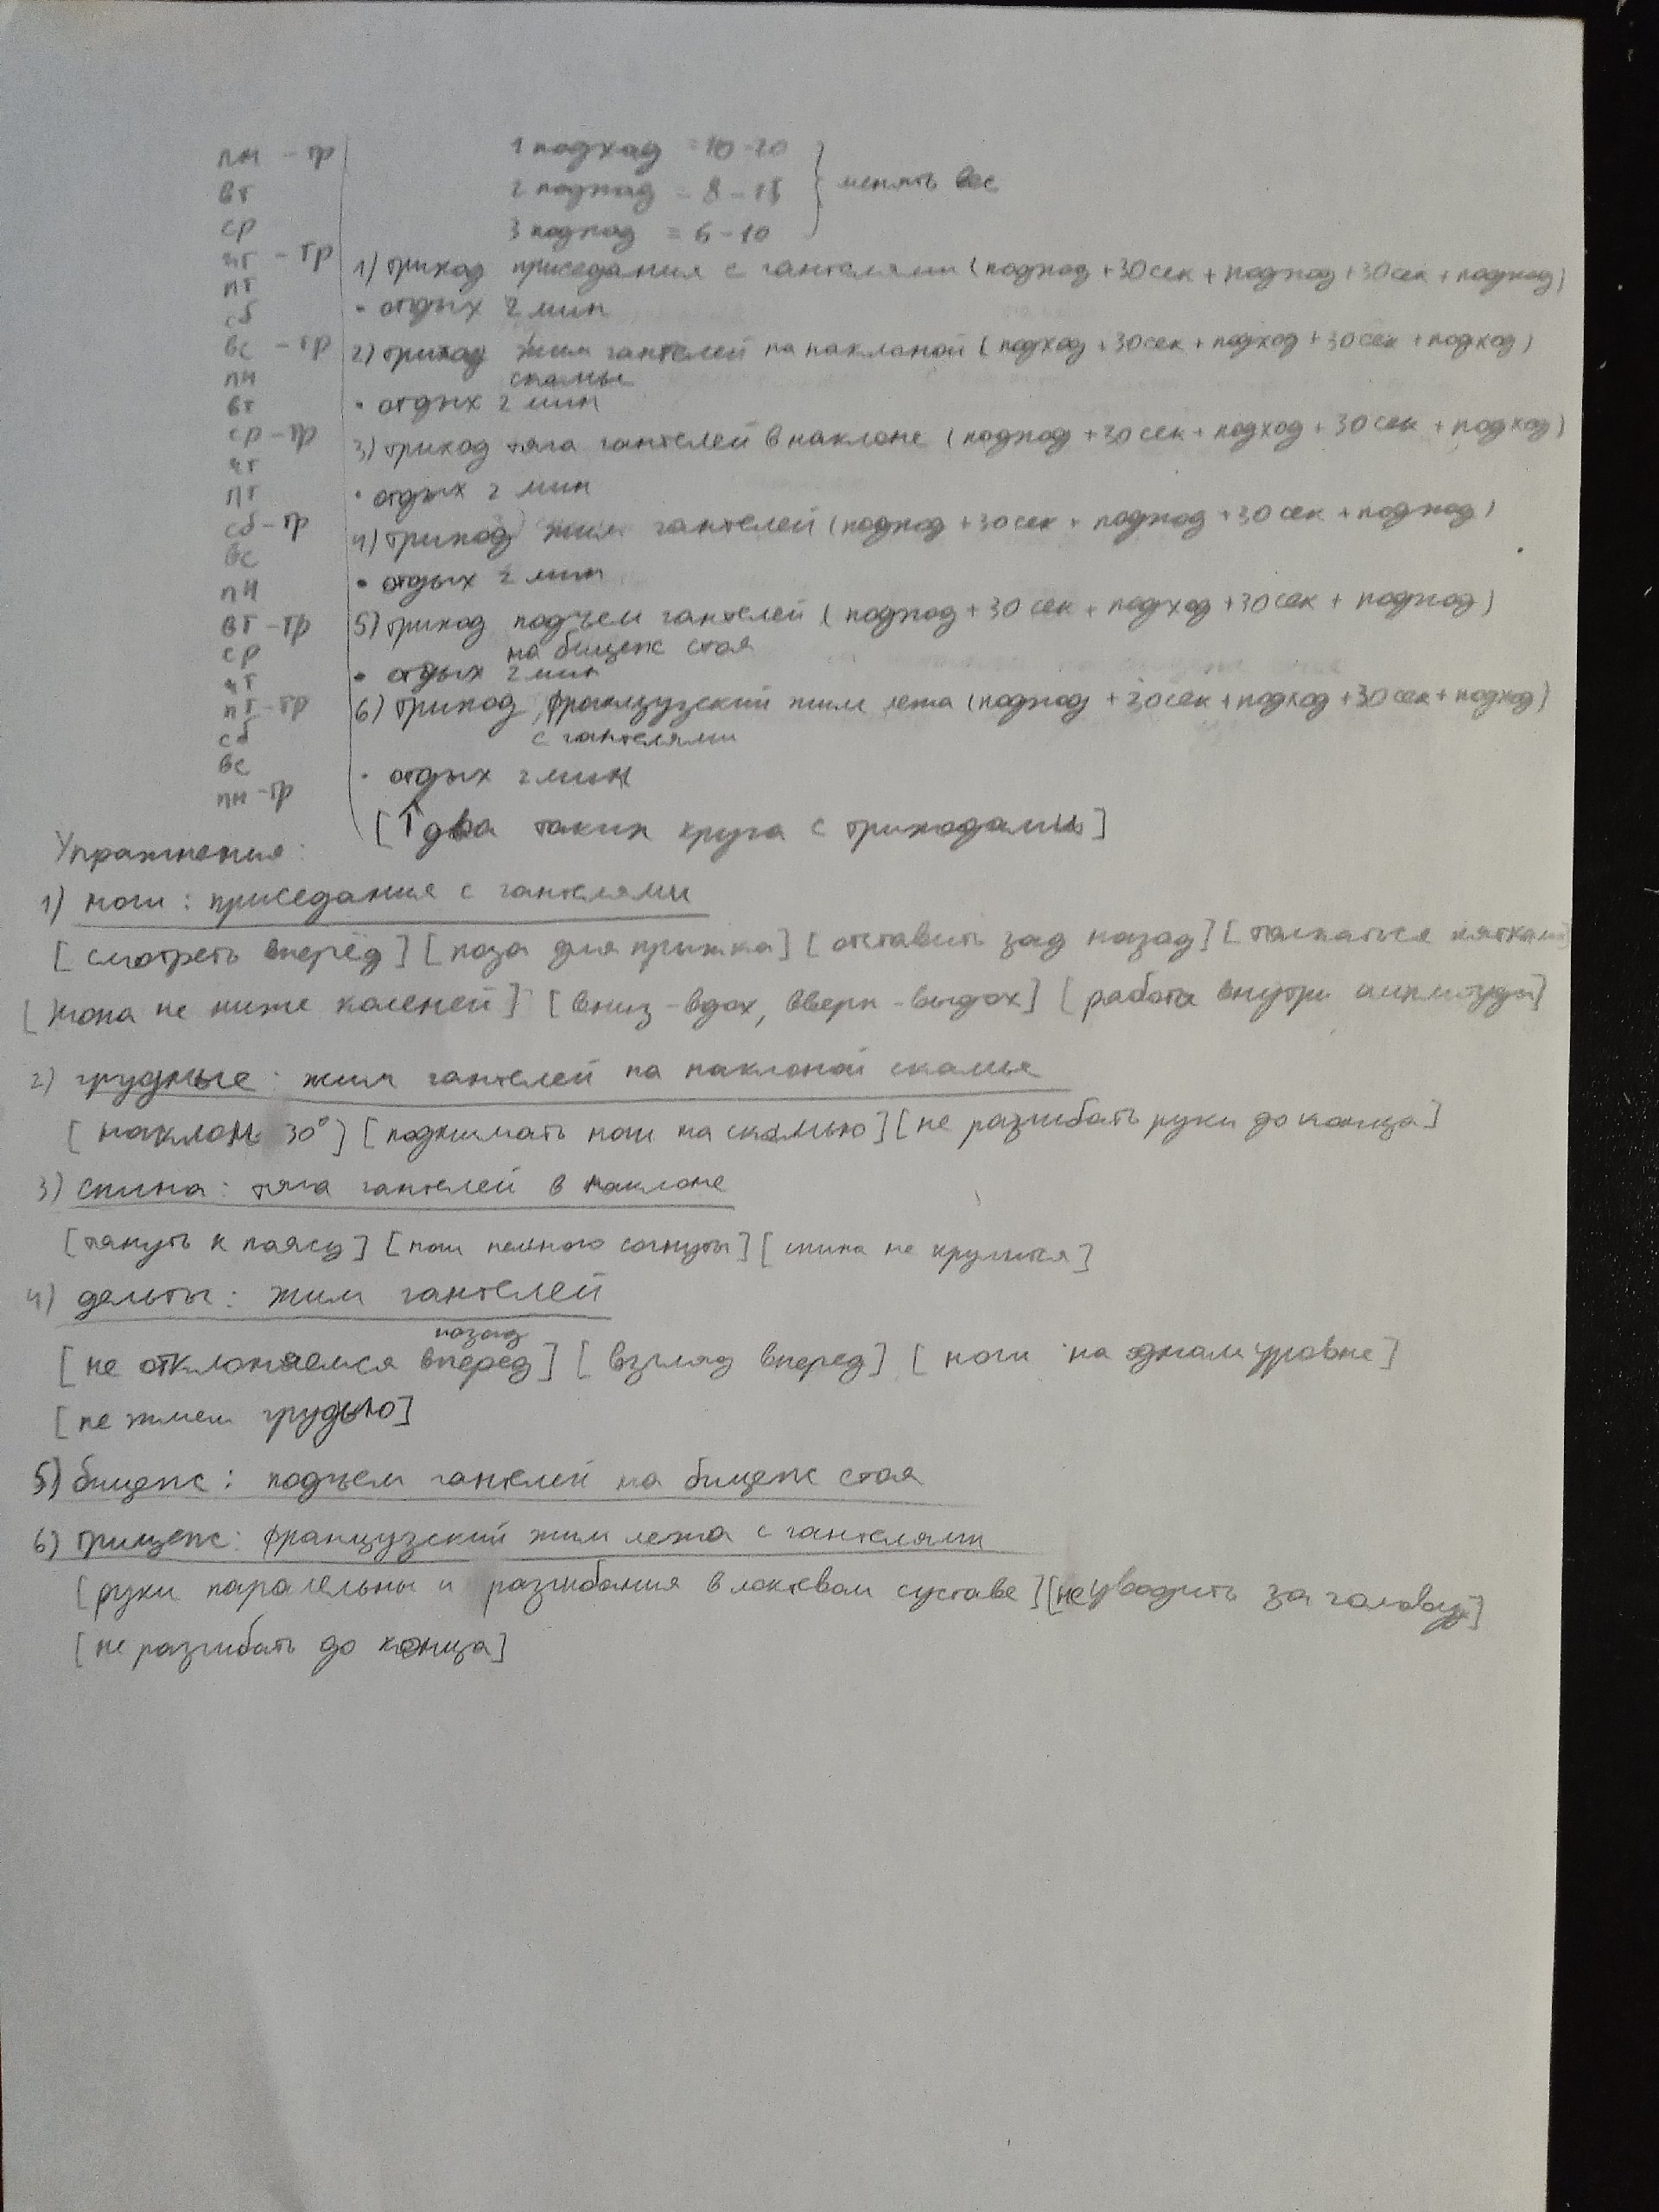 пн - тр
вт
ср
чт - тр
пт
сб
вс - тр
пн
вт
ср - тр
чт
пт
сб - тр
вс
пн
вт - тр
ср
чт
пт - тр
сб
вс
пн - тр
1 подход = 10-20
2 подход = 8-15
3 подход = 6-10
менять вес
1) триход приседания с гантелями (подход + 30 сек + подход + 30 сек + подход)
• отдых 2 мин
2) триход жим гантелей на наклоной (подход + 30 сек + подход + 30 сек + подход)
скамье
• отдых 2 мин
3) триход тяга гантелей в наклоне (подход + 30 сек + подход + 30 сек + подход)
• отдых 2 мин
4) триход жим гантелей (подход + 30 сек + подход + 30 сек + подход)
• отдых 2 мин
5) триход подъем гантелей (подход + 30 сек + подход + 30 сек + подход)
на бицепс стоя
• отдых 2 мин
6) триход французский жим лежа (подход + 30 сек + подход + 30 сек + подход)
с гантелями
• отдых 2 мин
[↑ два таких круга с триходами]
Упражнения:
1) ноги: приседания с гантелями
[смотреть вперёд] [поза для прыжка] [отставить зад назад] [толкаться пятками]
[жопа не ниже коленей] [вниз - вдох, вверх - выдох] [работа внутри амплитуды]
2) грудные: жим гантелей на наклоной скамье
[наклон 30°] [поднимать ноги на скамью] [не разгибать руки до конца]
3) спина: тяга гантелей в наклоне
[тянуть к поясу] [ноги немного согнуты] [спина не круглится]
4) дельты: жим гантелей
назад
[не отклоняемся вперед] [взгляд вперед] [ноги на одном уровне]
[не жмем грудью]
5) бицепс: подъем гантелей на бицепс стоя
6) трицепс: французский жим лежа с гантелями
[руки паралельны и разгибания в локтевом суставе] [не уводить за голову]
[не разгибать до конца]